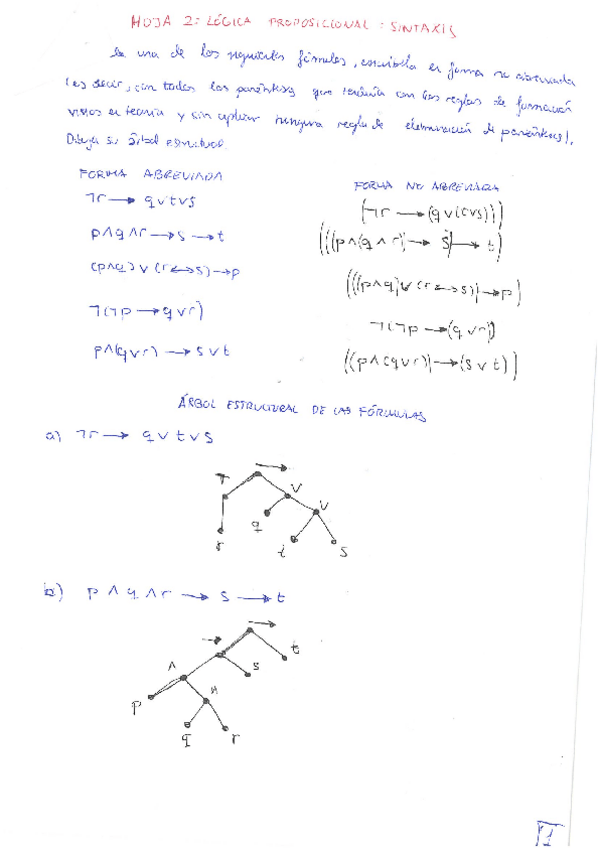 HOJA 2: LÓGICA PROPOSICIONAL: SINTAXIS
una de las siguientes fórmulas, escribirla en forma no abreviada
(es decir, con todos los paréntesis que tendría con las reglas de formación
vistas en teoría y sin aplicar ninguna regla de eliminación de paréntesis).
Dibuja su árbol estructural.
FORMA ABREVIADA
FORMA NO ABREVIADA
¬r → q∨t∨s
(¬r → (q∨(t∨s)))
p∧q∧r → s → t
(((p∧(q∧r) → s) → t)
(p∧q)∨(r↔s) → p
(((p∧q)∨(r↔s)) → p)
¬(¬p → q∨r)
¬(¬p → (q∨r))
p∧(q∨r) → s∨t
((p∧(q∨r)) → (s∨t))
ÁRBOL ESTRUCTURAL DE LAS FÓRMULAS
a) ¬r → q∨t∨s
→
¬
∨
∨
q
r
t
s
b) p∧q∧r → s → t
→
→
t
∧
s
∧
p
q
r
1